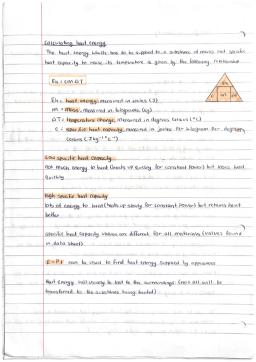 Calculating heat energy
The heat energy which has to be supplied to a substance of mass and specific
heat capacity to raise its temperature is given by the following relationship
Eh = cmΔT
Eh = heat energy measured in joules (J)
m = mass, measured in kilograms (kg)
ΔT = temperature change, measured in degrees celsius (°C)
c = specific heat capacity, measured in joules per kilogram per degrees
celsius (J kg⁻¹ °C⁻¹)
Low specific heat capacity
not much energy to heat (heats up quickly for constant power) but loses heat
quickly
High specific heat capacity
lots of energy to heat (heats up slowly for constant power) but retains heat
better
specific heat capacity values are different for all materials (values found
in data sheet)
E = Pt can be used to find heat energy supplied by appliances
Heat energy will usually be lost to the surroundings (not all will be
transferred to the substance being heated)